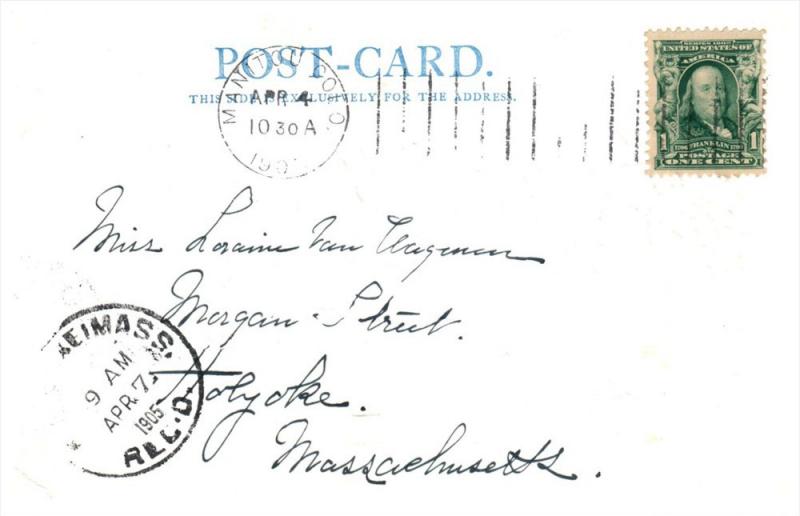 POST-CARD.
THIS SIDE EXCLUSIVELY FOR THE ADDRESS.
MANITOU COLO.
APR 4
10 30 A
190
SERIES 1902
UNITED STATES OF
AMERICA
1 1706 FRANKLIN 1790 1
POSTAGE
ONE CENT
Miss Loraine Van Wagenen
Morgan Street.
Holyoke.
Massachusetts.
MASS.
9 AM
APR 7
1905
REC'D.